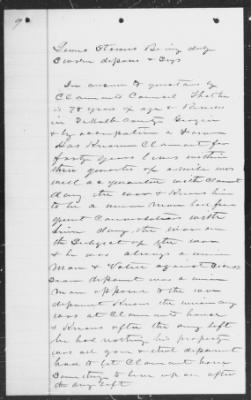 9
Lewis Stowers Being duly
Sworn deposes & Says
In answer to questions by
Claimants Counsel That he
is 78 years of age & Resides
in DeKalb County Georgia
& by occupation a Farmer
Has Known Claimant for
forty years lives within
three quarter of a mile was
well acquainted with Claimant
during the war & Knows him
to be a union Man had fre
quent Conversations with
him during the war on
the Subject of the war
& he was always a union
Man & Voted against
deponent was a union
Man opposed to the war
deponent Knows the union army
was at Claimants house
& Knows after the army left
he had nothing his property
was all gone & that deponent
had to let Claimant have
Something to live up on after
the army left